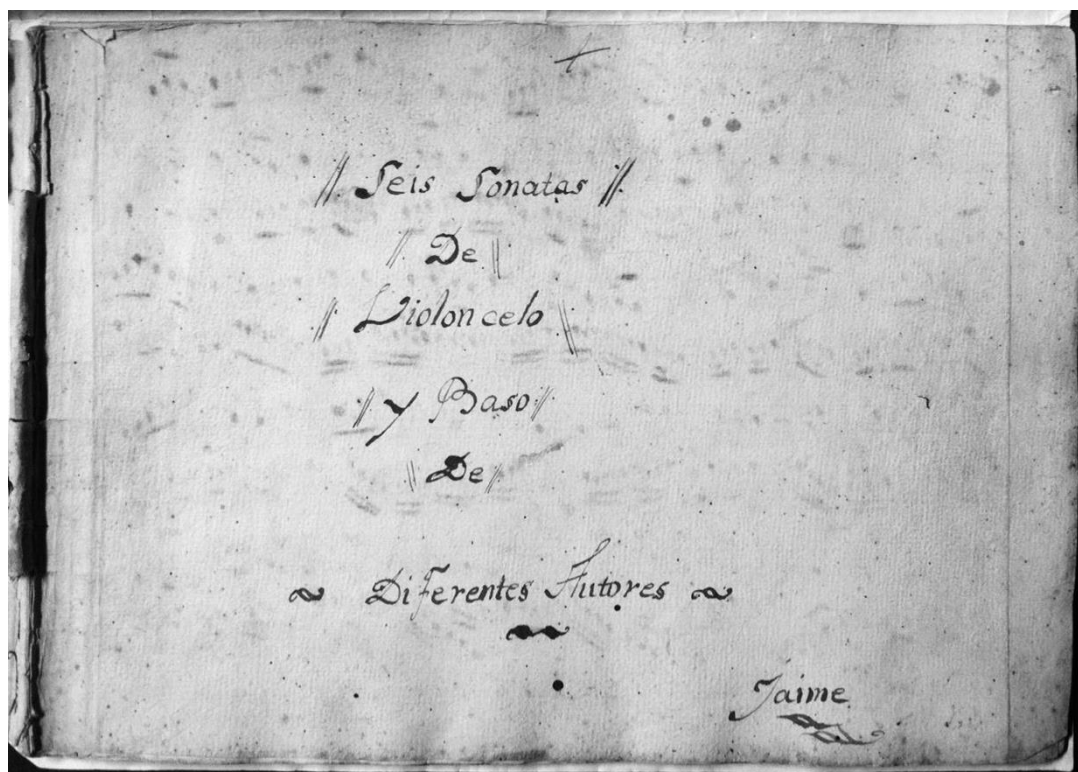 +
// Seis Sonatas //
// De //
// Violoncelo //
// y Baso //
// De //
~ Diferentes Autores ~
Jaime